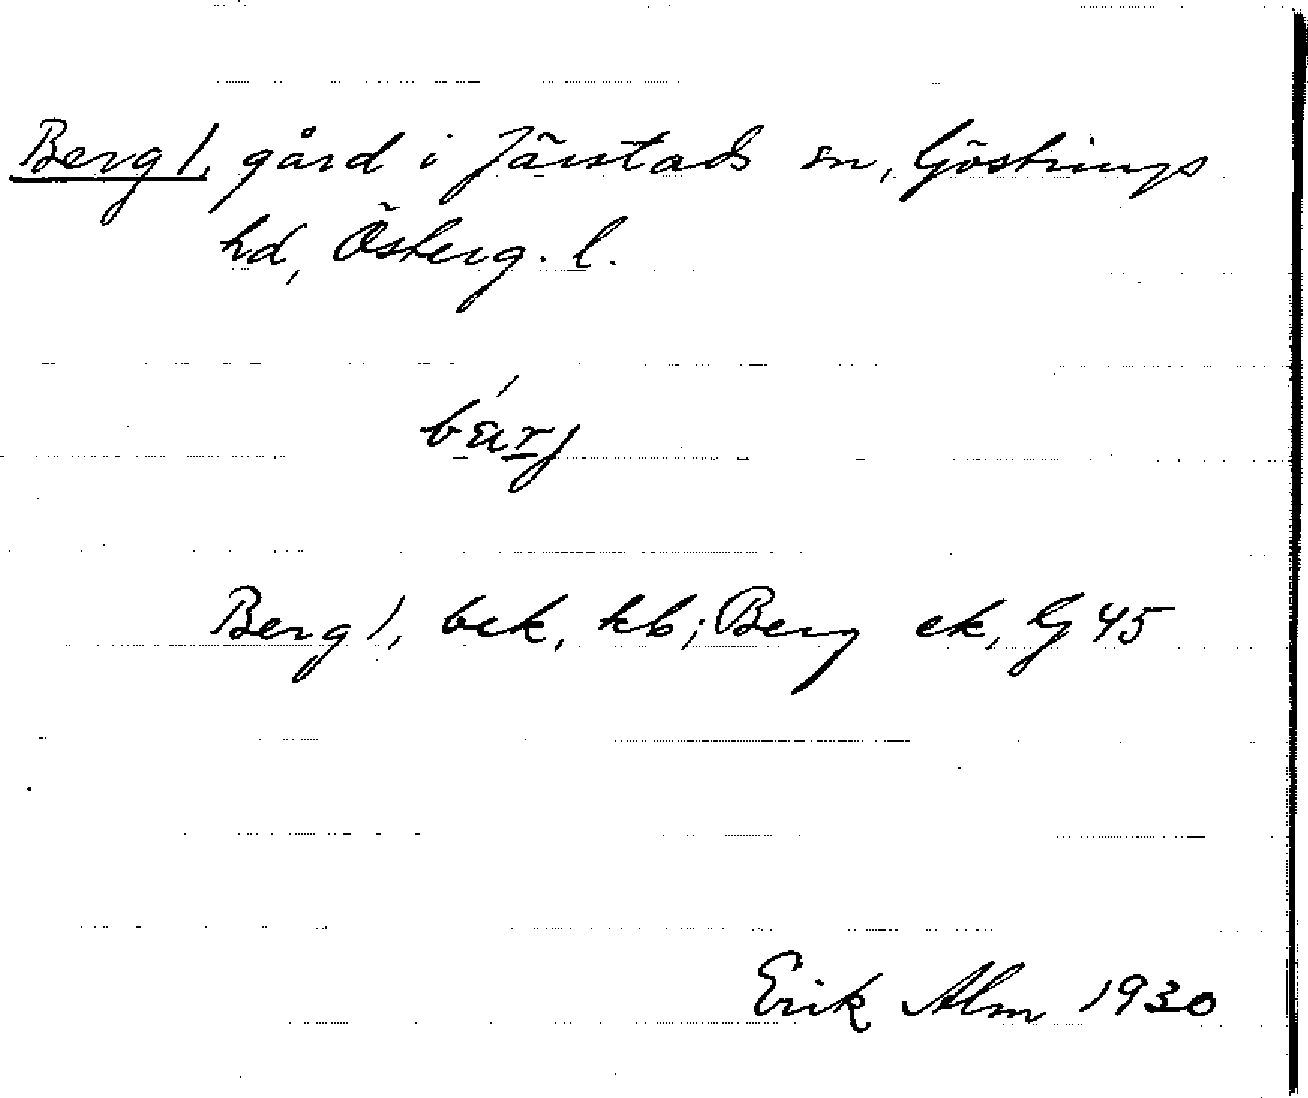 Berg 1, gård i Järstads sn, Göstrings
hd, Österg. l.
bærj
Berg 1, bek, kb; Berg ek, G 45
Erik Alm 1930